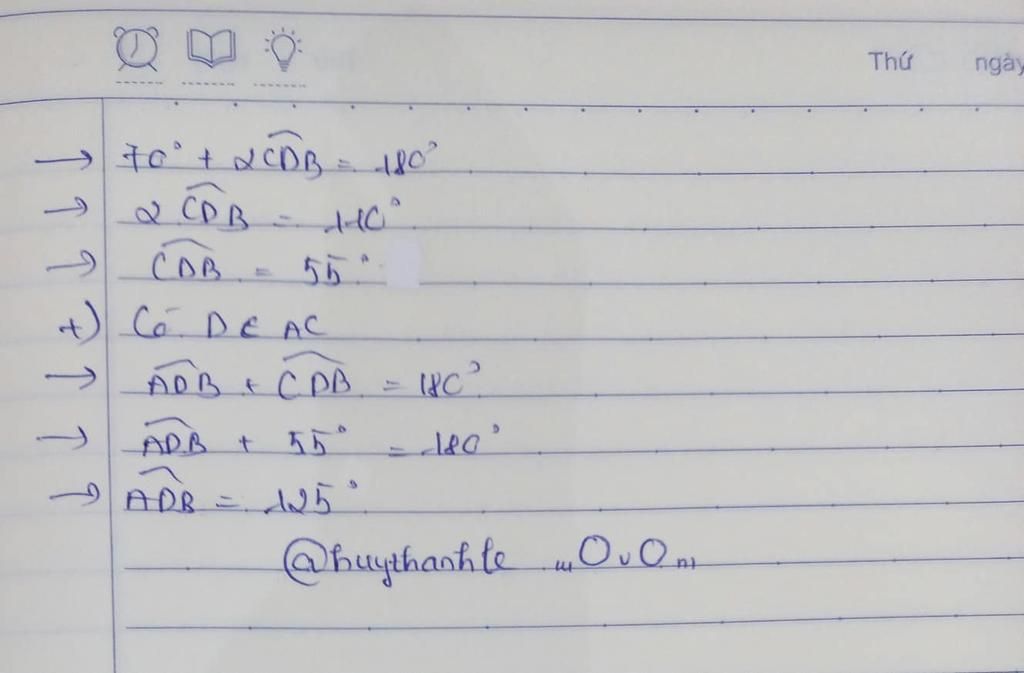 Thứ ngày
→ 70° + 2CDB = 180°
→ 2 CDB = 110°
→ CDB = 55°
+) Có D ∈ AC
→ ADB + CDB = 180°
→ ADB + 55° = 180°
→ ADB = 125°
@huythanhle „OvO„